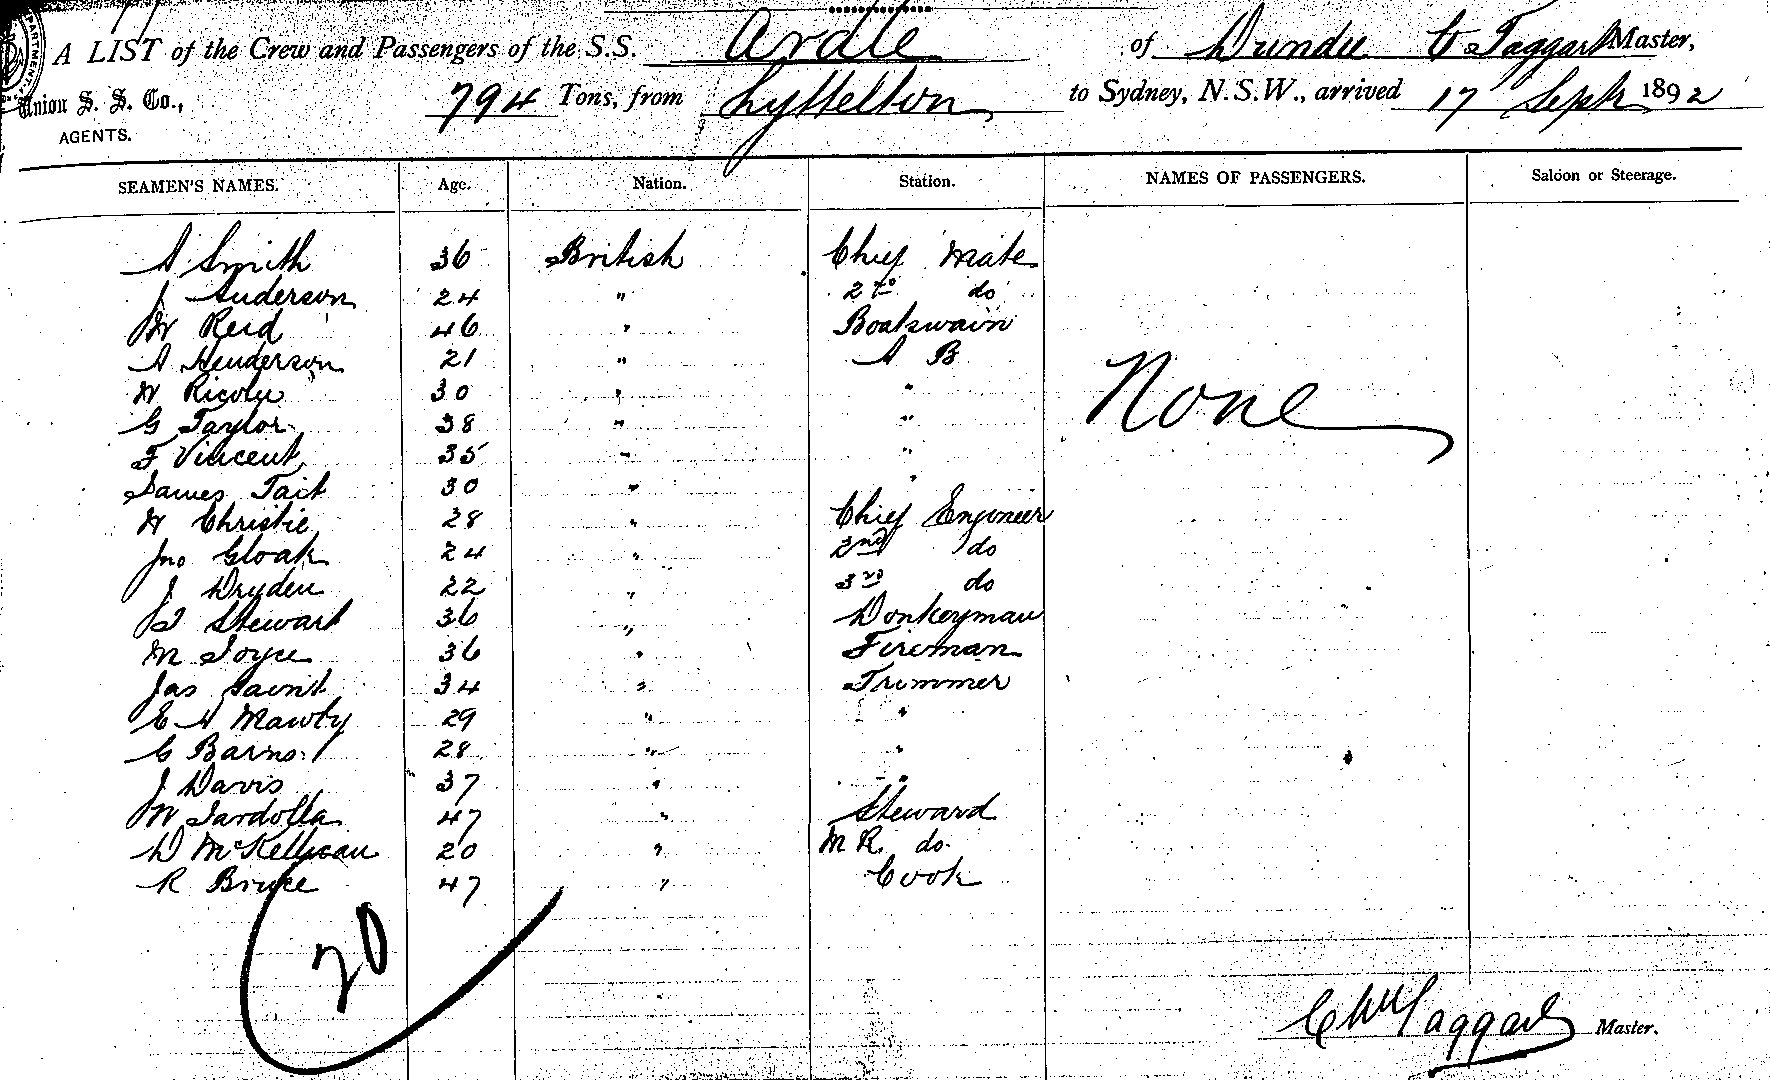 A LIST of the Crew and Passengers of the S.S. Ardle of Dundee C. Taggart Master,
Union S. S. Co., 794 Tons, from Lyttelton, to Sydney, N.S.W., arrived 17 Sept 1892
AGENTS.
SEAMEN'S NAMES. Age. Nation. Station. NAMES OF PASSENGERS. Saloon or Steerage.
A Smith 36 British Chief Mate
J Anderson 24 " 2nd do
W Reid 46 " Boatswain
A Henderson 21 " A B
W 30 " "
G Taylor 38 " "
F Vincent 35 " "
James Tait 30 " "
None
W Christie 28 " Chief Engineer
Jno Gloak 24 " 2nd do
J Dryden 22 " 3rd do
Stewart 36 " Donkeyman
M Joyce 36 " Fireman
Jas 34 " Trimmer
E A Mawby 29 " "
G Barns 28 " "
J Davis 37 " "
W 47 " Steward
D McKellican 20 " M R do.
R Bruce 47 " Cook
20
Taggart Master.